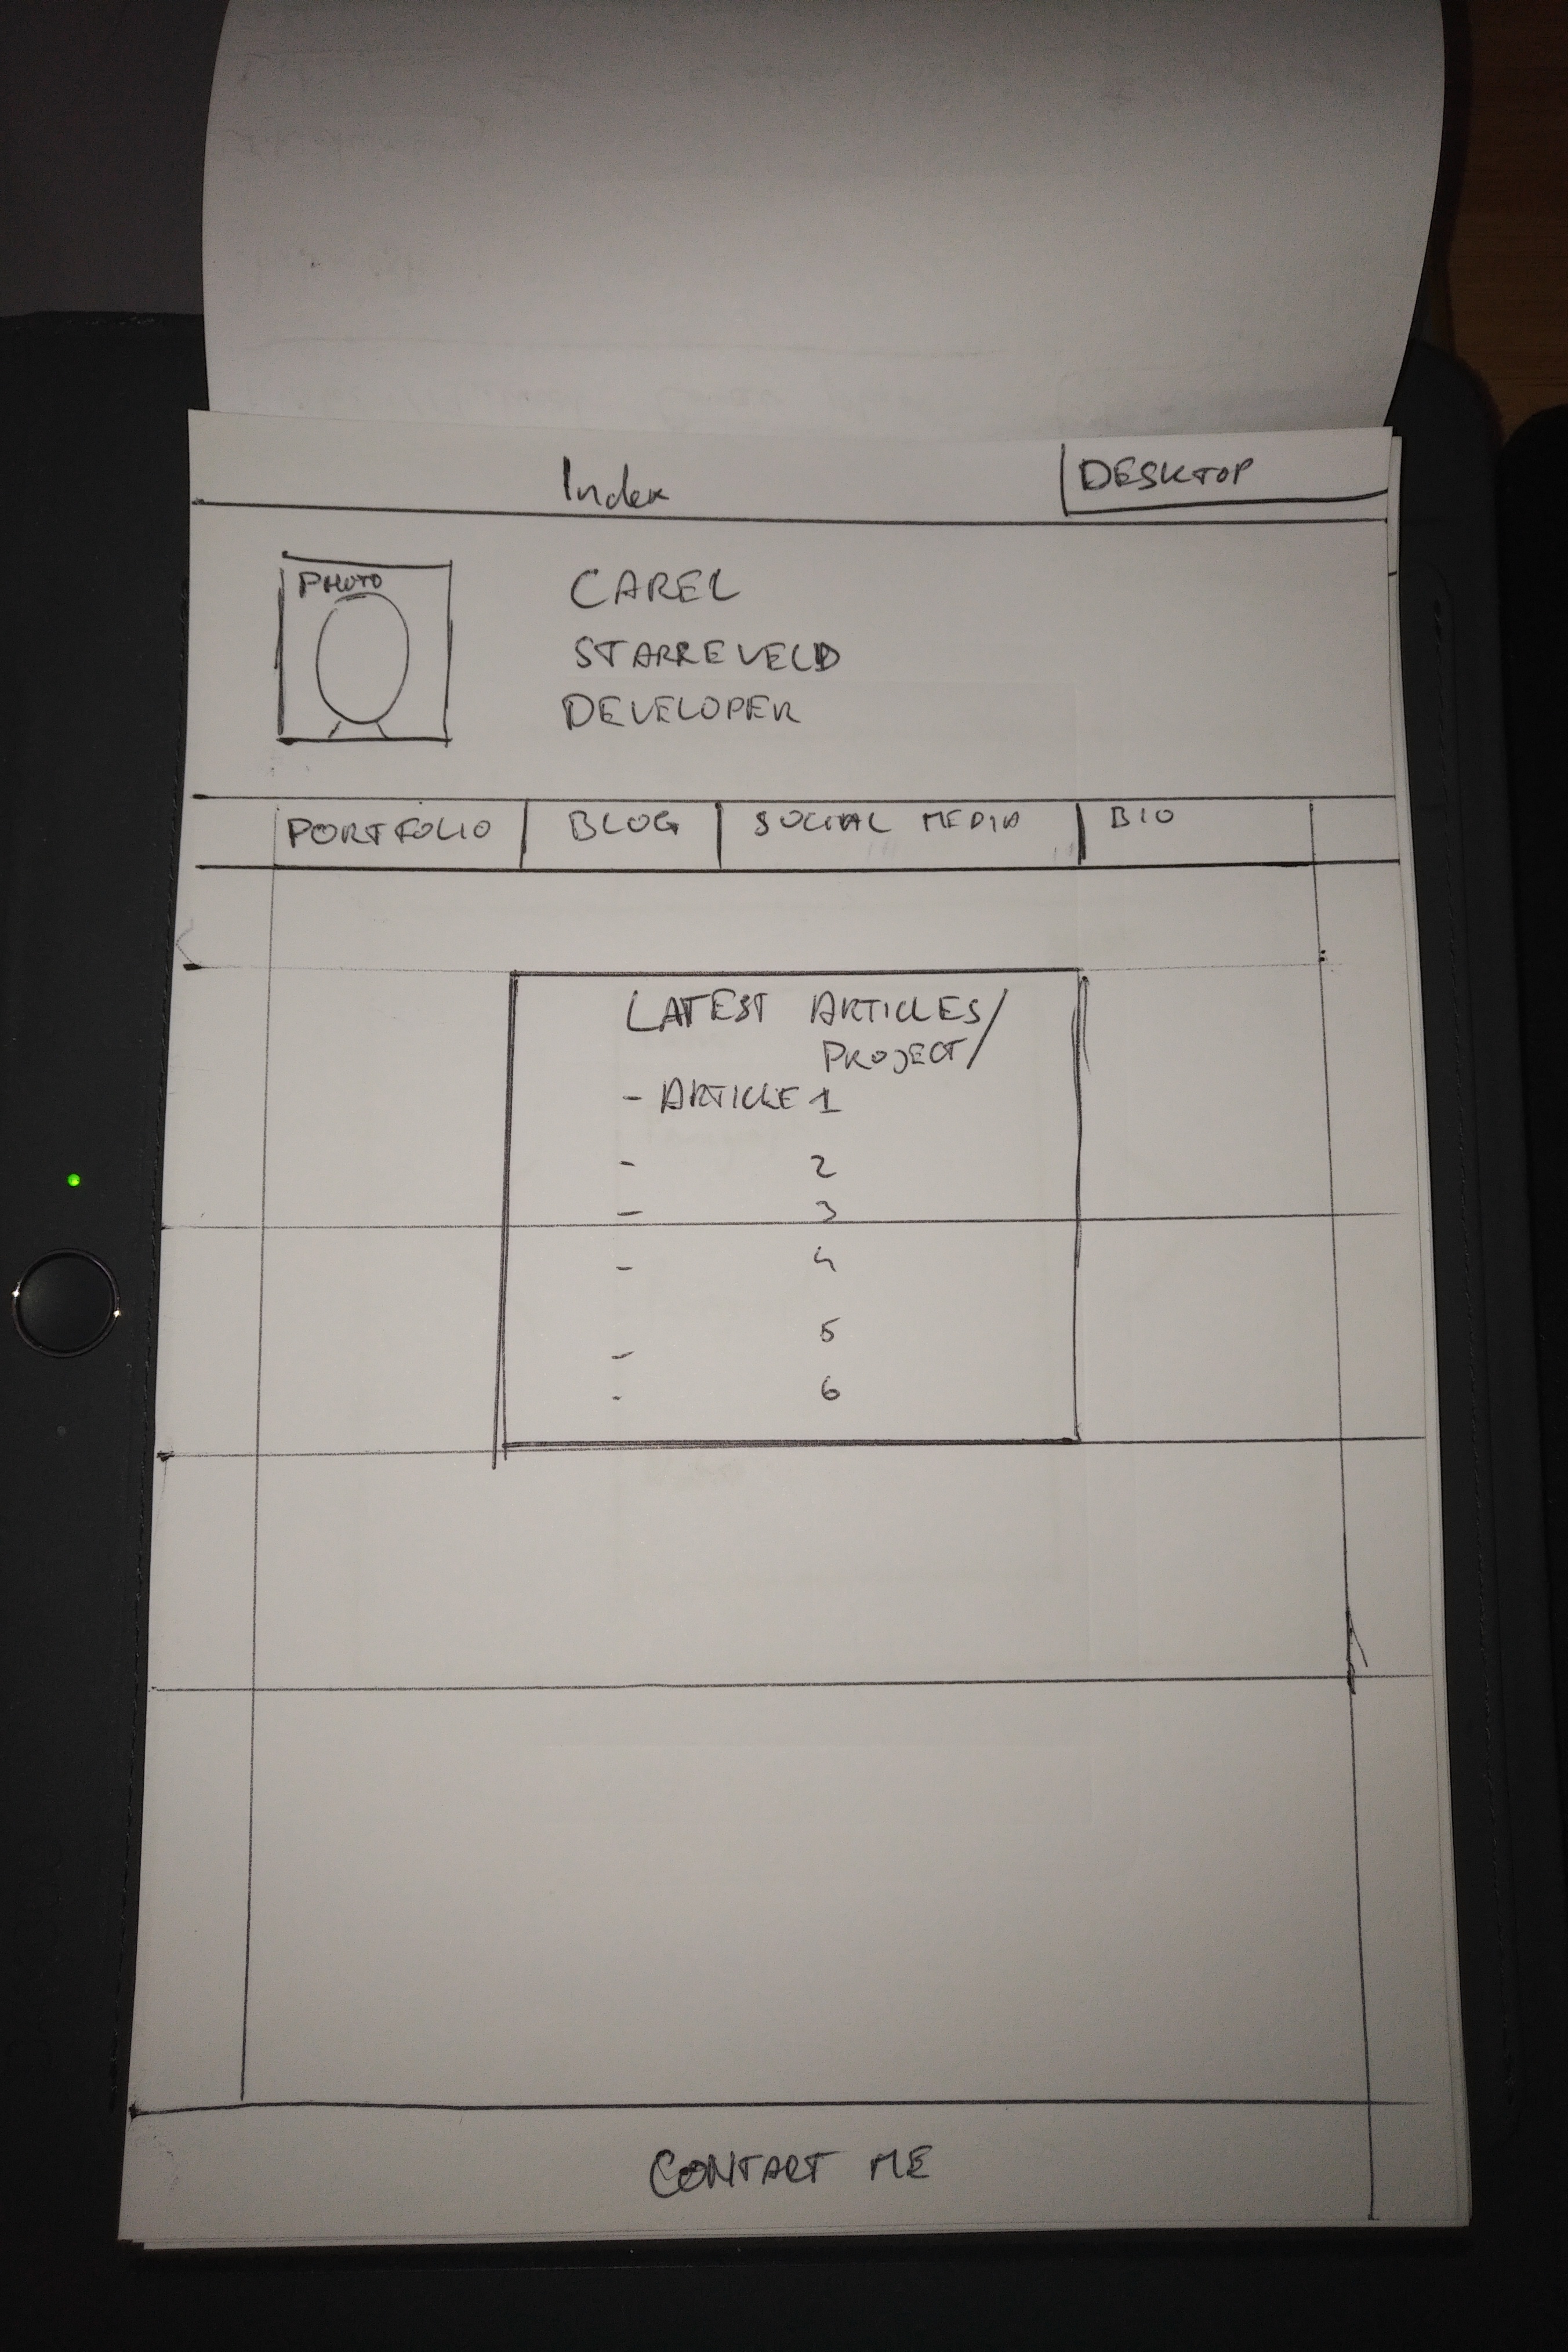 Index
DESKTOP
PHOTO
CAREL
STARREVELD
DEVELOPER
PORTFOLIO
BLOG
SOCIAL MEDIA
BIO
LATEST ARTICLES/
PROJECT/
- ARTICLE 1
- 2
- 3
- 4
- 5
- 6
CONTACT ME